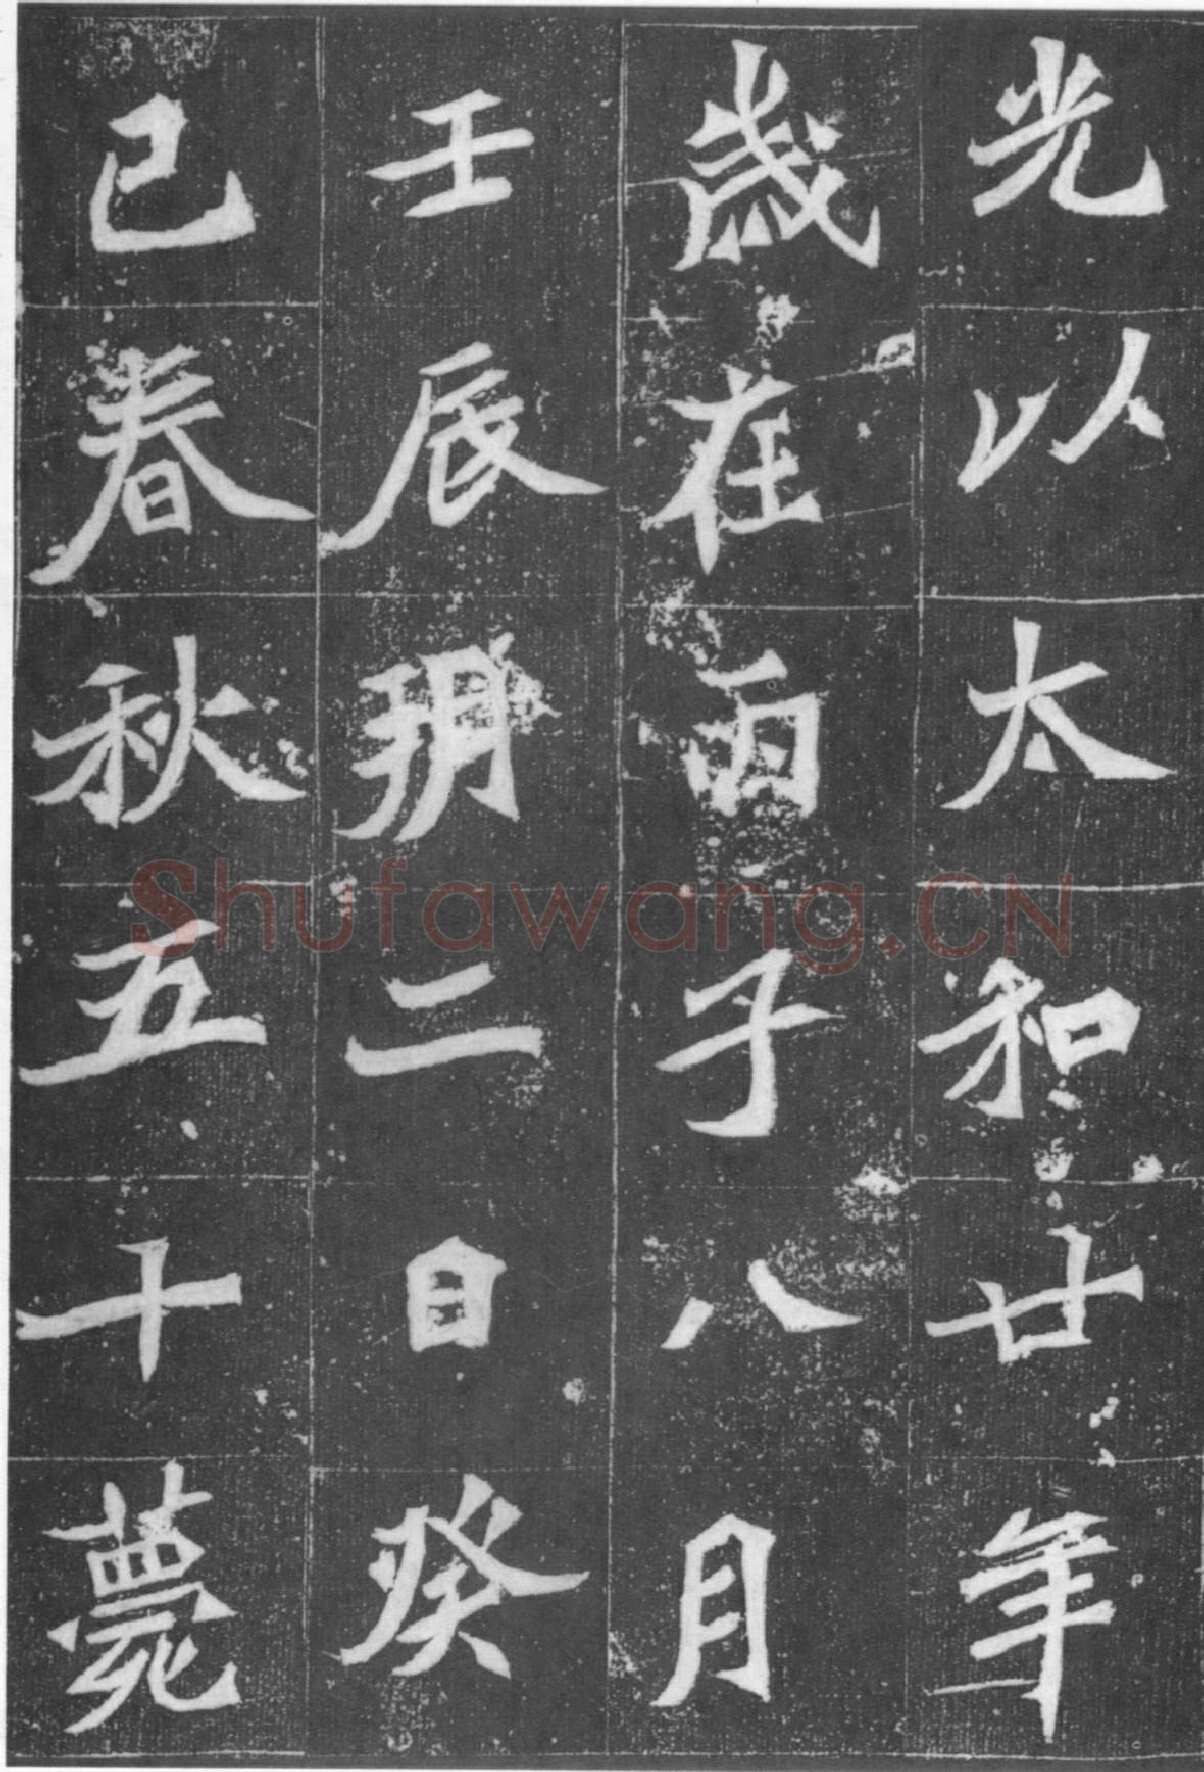 光以太和廿年
歲在丙子八月
壬辰朔二日癸
巳春秋五十薨
Shufawang.CN